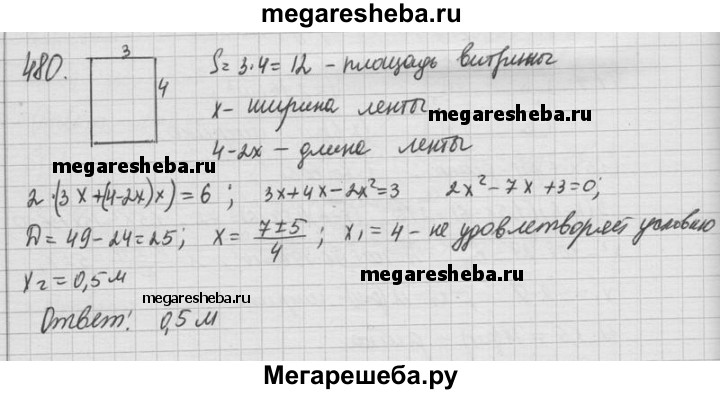 megaresheba.ru
480. 3 S = 3·4 = 12 - площадь витрины
4
x - ширина ленты
megaresheba.ru
4-2x - длина ленты
megaresheba.ru
2·(3x+(4-2x)x) = 6 ; 3x+4x-2x²=3 2x²-7x+3=0;
D = 49-24=25; x = 7±5/4 ; x₁ = 4 - не удовлетворяет условию
x₂ = 0,5 м
megaresheba.ru
megaresheba.ru
Ответ: 0,5 м
Мегарешеба.ру